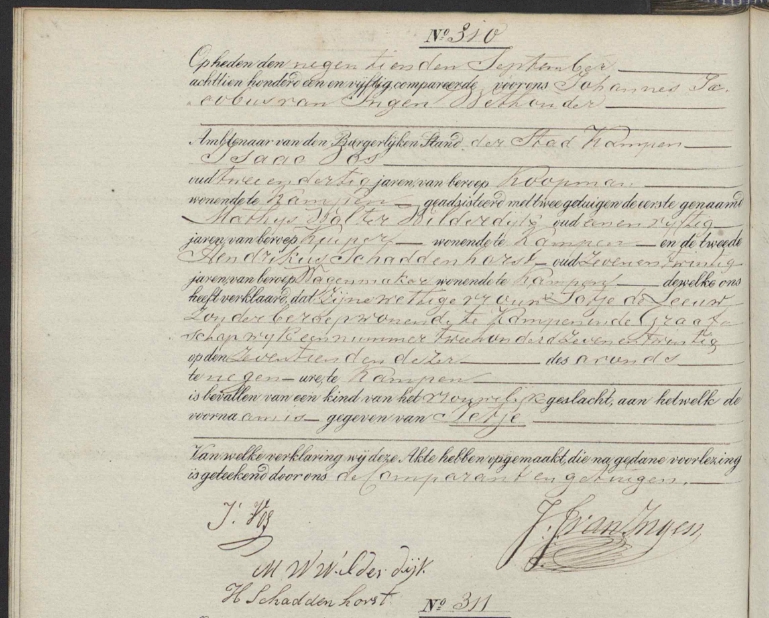 No 310
Op heden den negentienden September
achttien honderd een en vyftig, compareerde voor ons Johannes Ja-
cobus van Ingen
Ambtenaar van den Burgerlyken Stand, der Stad Kampen
Isaac Vos
oud twee en dertig jaren, van beroep Koopman
wonende te Kampen geadsisteerd met twee getuigen de eerste genaamd
Mathys Wolter Wilderdyk oud een en vyftig
jaren, van beroep Kuiper wonende te Kampen en de tweede
Hendrikus Schaddenhorst oud zeven en twintig
jaren, van beroep Wagenmaker wonende te Kampen dewelke ons
heeft verklaard, dat zijne wettige vrouw de Leeuw
zonder beroep wonende te Kampen in de Graaf
schap wyk een nummer twee honderd zeven en twintig
op den zeventienden dezer des avonds
te negen ure, te Kampen
is bevallen van een kind van het vrouwelijk geslacht, aan hetwelk de
voornaam is gegeven van
Van welke verklaring wy deze Akte hebben opgemaakt, die na gedane voorlezing
is geteekend door ons de Comparant en getuigen.
I. Vos
J. J. van Ingen
M W Wilderdijk
H Schaddenhorst
No 311